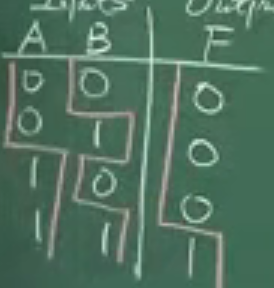 Inputs Outpu
A B F
0 0 0
0 1 0
1 0 0
1 1 1